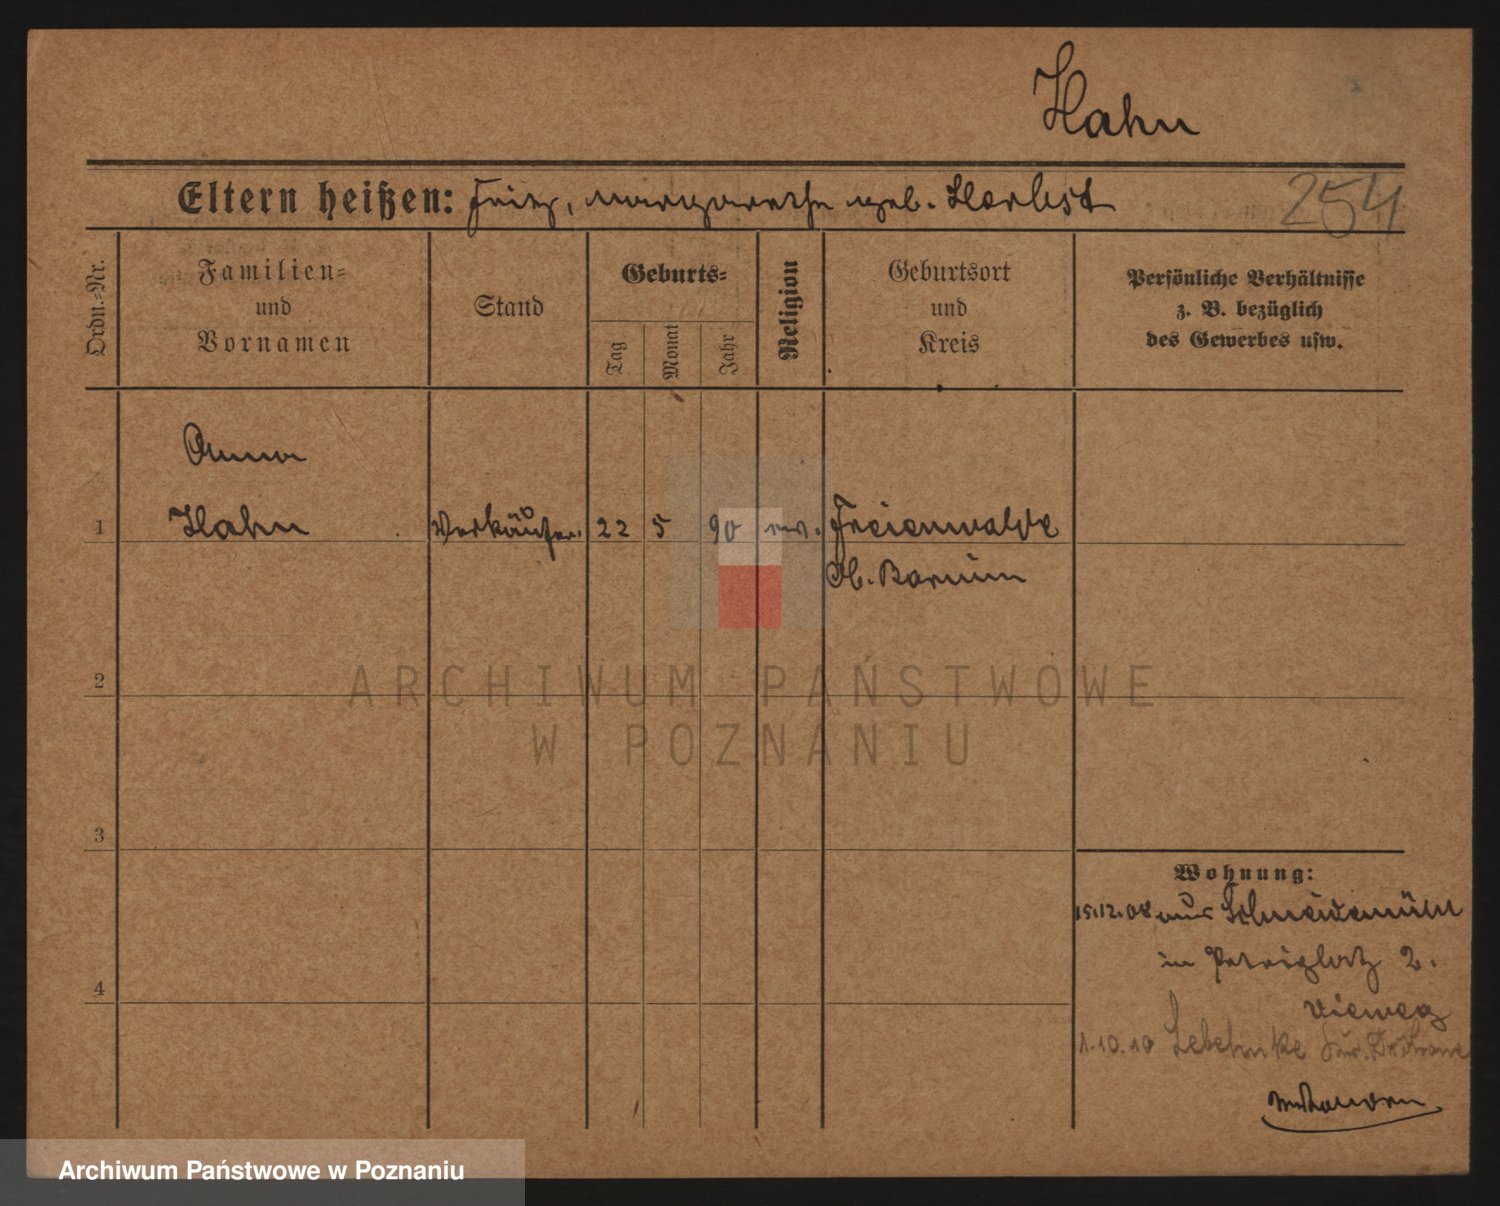 Hahn
Eltern heißen: Fritz, Margarethe geb. Herbst
254
Ordn.-Nr.
Familien-
und
Vornamen
Stand
Geburts-
Tag
Monat
Jahr
Religion
Geburtsort
und
Kreis
Persönliche Verhältnisse
z. B. bezüglich
des Gewerbes usw.
Anna
1 Hahn Verkäufer. 22 5 90 ev. Freienwalde
Ob. Barnim
2
3
4
Wohnung:
15.12.08 aus Schneidemühl
in Petriplatz 2.
Vieweg
1.10.10 Lebehnke
ARCHIWUM PAŃSTWOWE
W POZNANIU
Archiwum Państwowe w Poznaniu